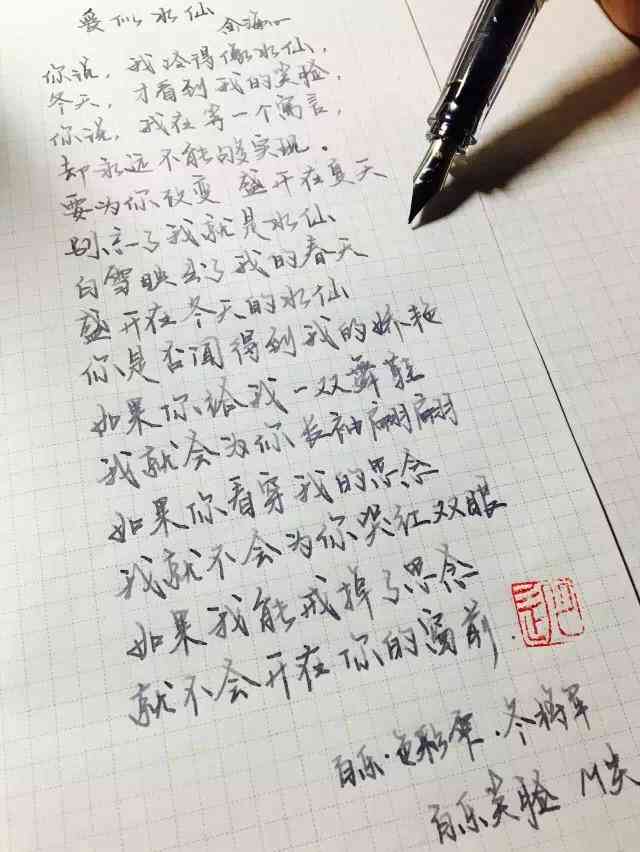 爱似水仙
金海心
你说，我冷得像水仙，
冬天，才看到我的笑脸，
你说，我在等一个寓言，
却永远不能够实现．
要为你改变 盛开在夏天
别忘了我就是水仙
白雪映出了我的春天
盛开在冬天的水仙
你是否闻得到我的娇艳
如果你给我一双舞鞋
我就会为你长袖翩翩
如果你看穿我的思念
我就不会为你哭红双眼
如果我能戒掉了思念
就不会开在你的窗前．
百乐·色彩雫·冬将军
百乐笑脸 M尖